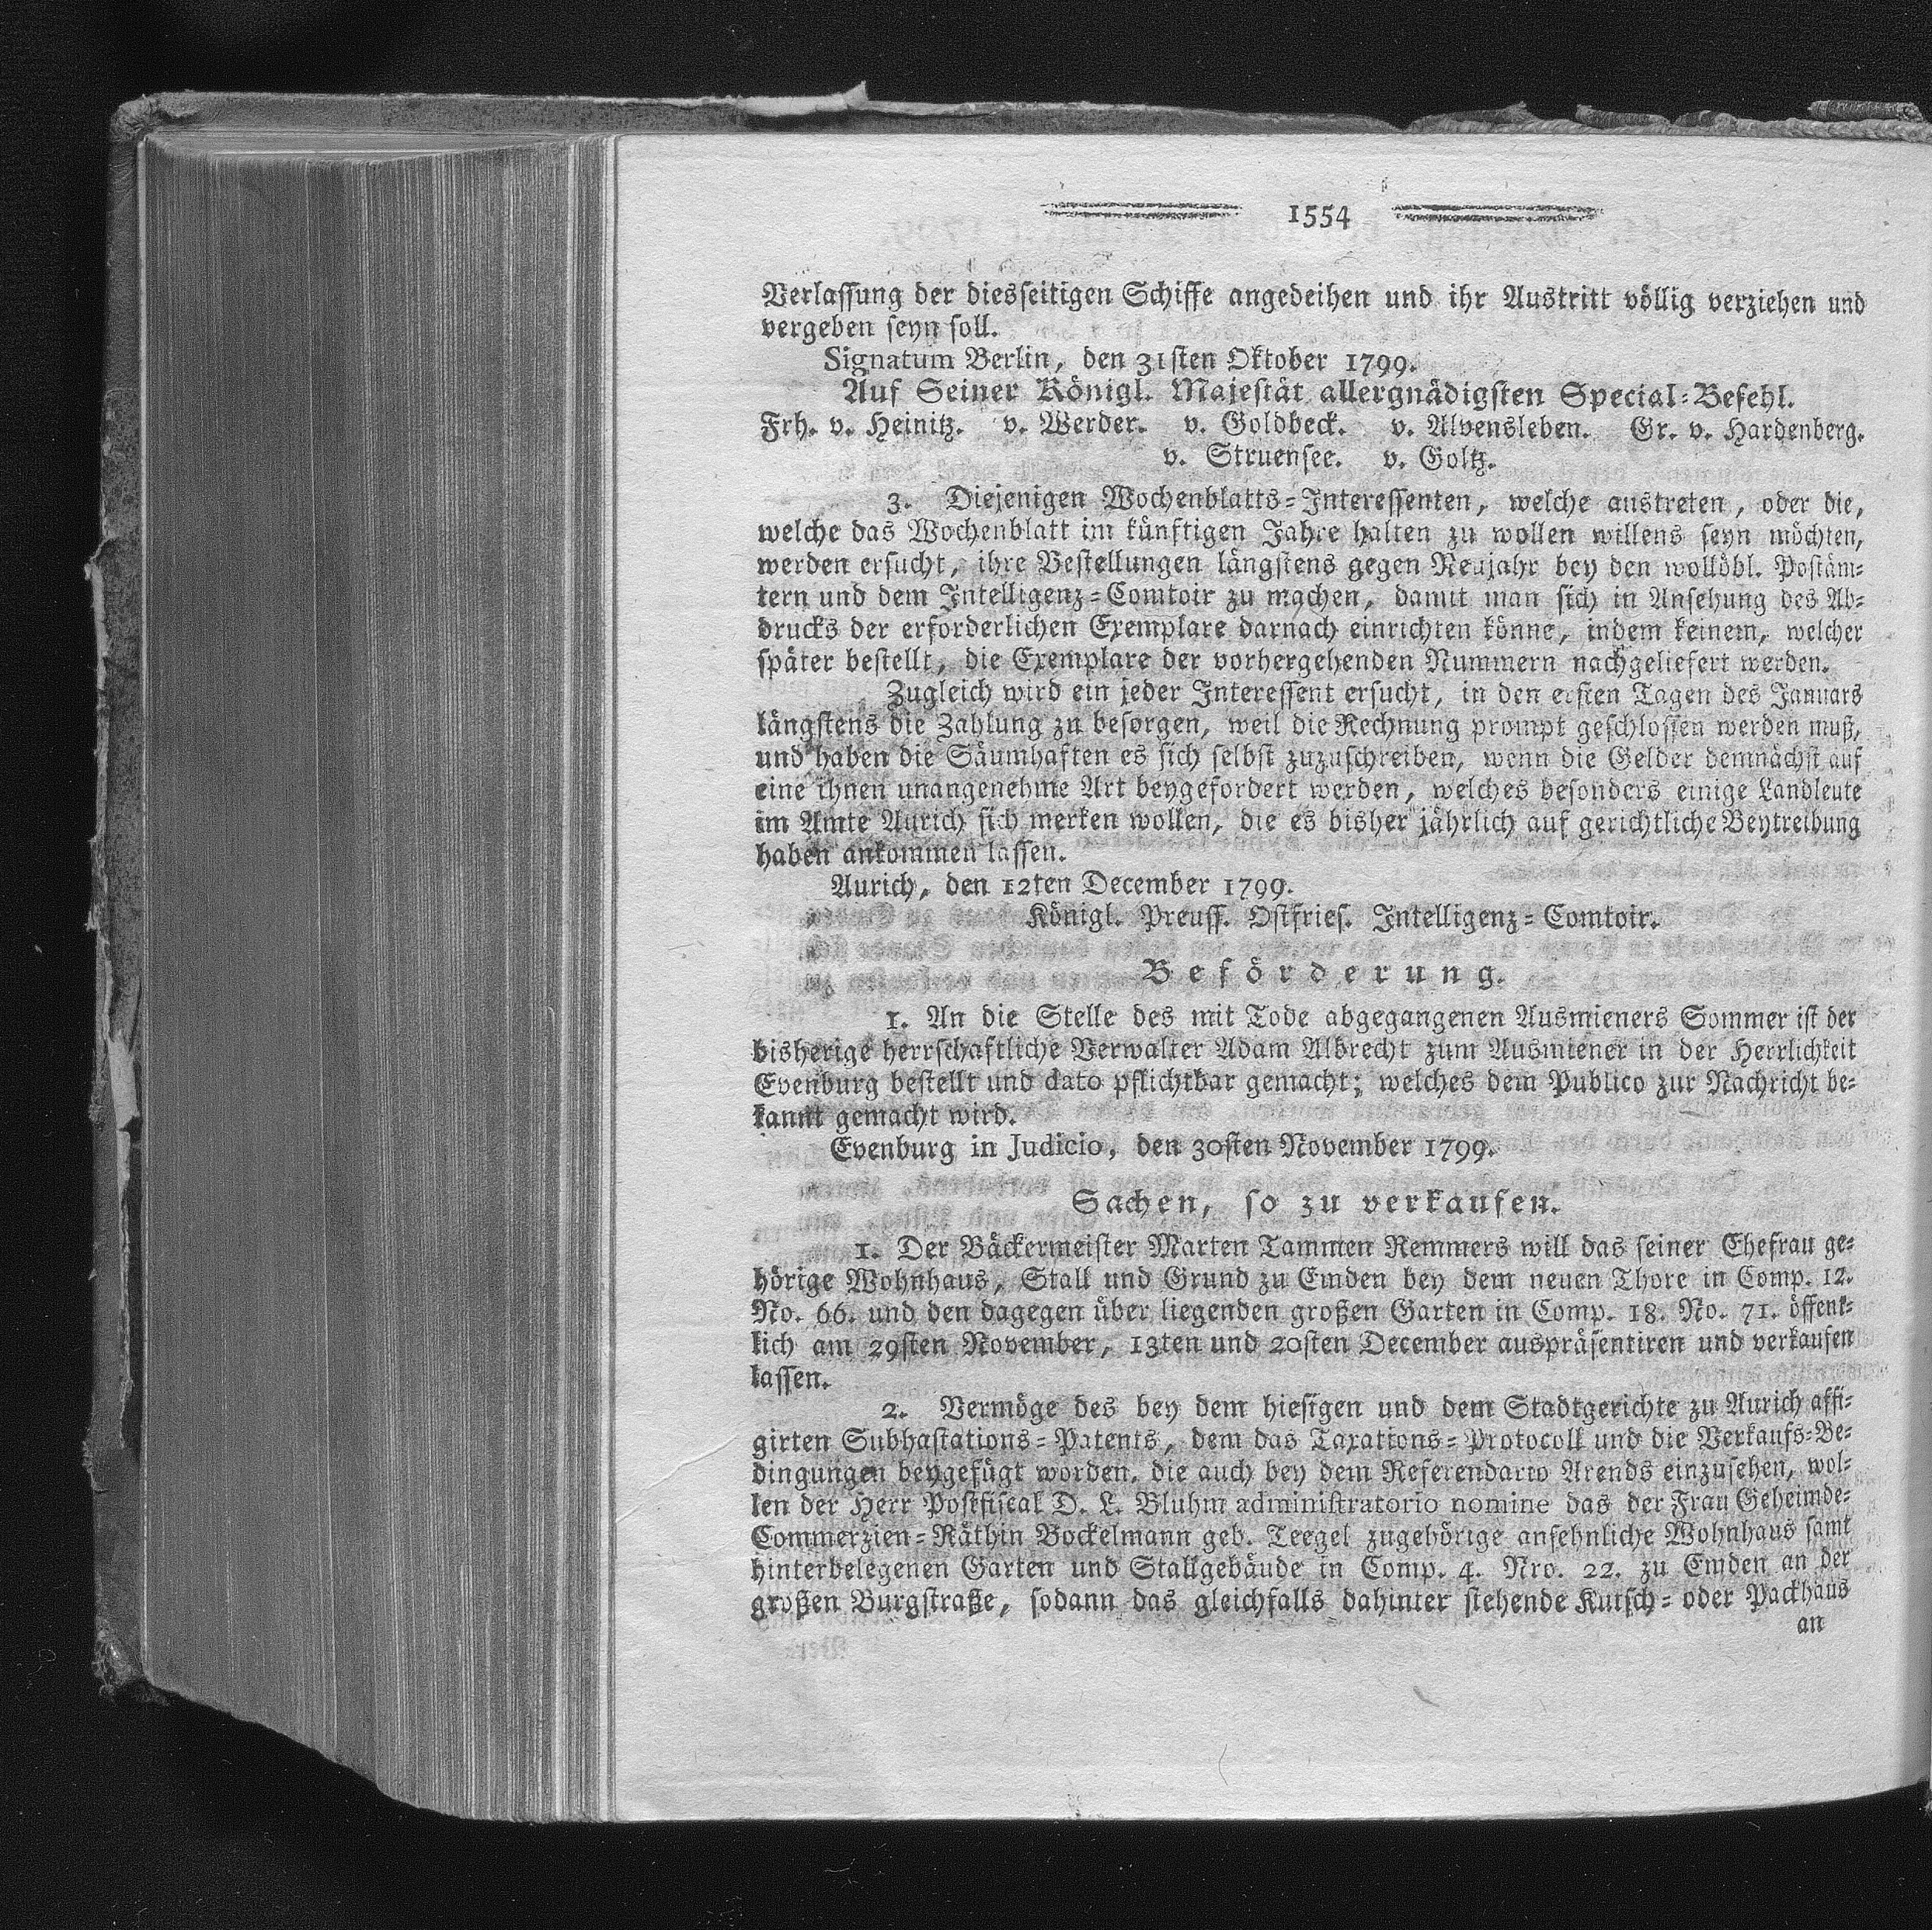 1554
Verlassung der diesseitigen Schiffe angedeihen und ihr Austritt völlig verziehen und
vergeben seyn soll.
Signatum Berlin, den 31sten Oktober 1799.
Auf Seiner Königl. Majestät allergnädigsten Special-Befehl.
Frh. v. Heinitz. v. Werder. v. Goldbeck. v. Alvensleben. Gr. v. Hardenberg.
v. Struensee. v. Goltz.
3. Diejenigen Wochenblatts-Interessenten, welche austreten, oder die,
welche das Wochenblatt im künftigen Jahre halten zu wollen willens seyn möchten,
werden ersucht, ihre Bestellungen längstens gegen Neujahr bey den wollöbl. Postäm-
tern und dem Intelligenz-Comtoir zu machen, damit man sich in Ansehung des Ab-
drucks der erforderlichen Exemplare darnach einrichten könne, indem keinem, welcher
später bestellt, die Exemplare der vorhergehenden Nummern nachgeliefert werden.
Zugleich wird ein jeder Interessent ersucht, in den ersten Tagen des Januars
längstens die Zahlung zu besorgen, weil die Rechnung prompt geschlossen werden muß,
und haben die Säumhaften es sich selbst zuzuschreiben, wenn die Gelder demnächst auf
eine ihnen unangenehme Art beygefordert werden, welches besonders einige Landleute
im Amte Aurich sich merken wollen, die es bisher jährlich auf gerichtliche Beytreibung
haben ankommen lassen.
Aurich, den 12ten December 1799.
Königl. Preuss. Ostfries. Intelligenz-Comtoir.
Beförderung.
1. An die Stelle des mit Tode abgegangenen Ausmieners Sommer ist der
bisherige herrschaftliche Verwalter Adam Albrecht zum Ausmiener in der Herrlichkeit
Evenburg bestellt und dato pflichtbar gemacht; welches dem Publico zur Nachricht be-
kannt gemacht wird.
Evenburg in Judicio, den 30sten November 1799.
Sachen, so zu verkaufen.
1. Der Bäckermeister Marten Tammen Remmers will das seiner Ehefrau ge-
hörige Wohnhaus, Stall und Grund zu Emden bey dem neuen Thore in Comp. 12.
No. 66. und den dagegen über liegenden großen Garten in Comp. 18. No. 71. öffent-
lich am 29sten November, 13ten und 20sten December auspräsentiren und verkaufen
lassen.
2. Vermöge des bey dem hiesigen und dem Stadtgerichte zu Aurich affi-
girten Subhastations-Patents, dem das Taxations-Protocoll und die Verkaufs-Be-
dingungen beygefügt worden, die auch bey dem Referendario Arends einzusehen, wol-
len der Herr Postfiscal D. L. Bluhm administratorio nomine das der Frau Geheimde-
Commerzien-Räthin Bockelmann geb. Teegel zugehörige ansehnliche Wohnhaus samt
hinterbelegenen Garten und Stallgebäude in Comp. 4. Nro. 22. zu Emden an der
großen Burgstraße, sodann das gleichfalls dahinter stehende Kutsch- oder Packhaus
an